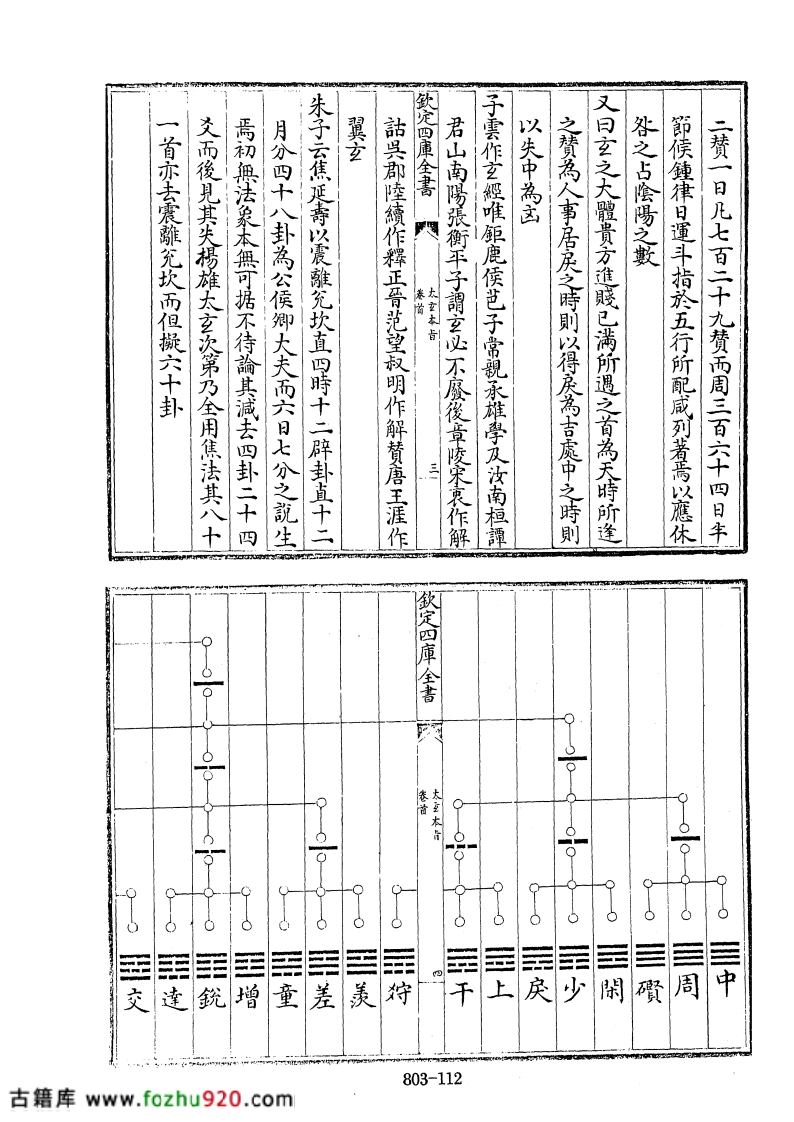 二贊一日凡七百二十九贊而周三百六十四日年
節候鍾律日運斗指於五行所配咸列著焉以應休
咎之占陰陽之數
又曰玄之大體貴方進賤已滿所遇之首為天時所逢
之贊為人事居戾之時則以得戾為吉處中之時則
以失中為凶
子雲作玄經唯鉅鹿侯芭子常親承雄學及汝南桓譚
君山南陽張衡平子謂玄必不廢後章陵宋衷作解
欽定四庫全書
太玄本旨
卷首
三
詁吳郡陸續作釋正晉范望叔明作解贊唐王涯作
翼玄
朱子云焦延壽以震離兊坎直四時十二辟卦直十二
月分四十八卦為公侯卿大夫而六日七分之說生
焉初無法象本無可据不待論其減去四卦二十四
爻而後見其失揚雄太玄次第乃全用焦法其八十
一首亦去震離兊坎而但擬六十卦
中
周
礥
閑
少
戾
上
干
欽定四庫全書
太玄本旨
卷首
四
狩
羨
差
童
增
銳
達
交
803-112
古籍库 www.fozhu920.com